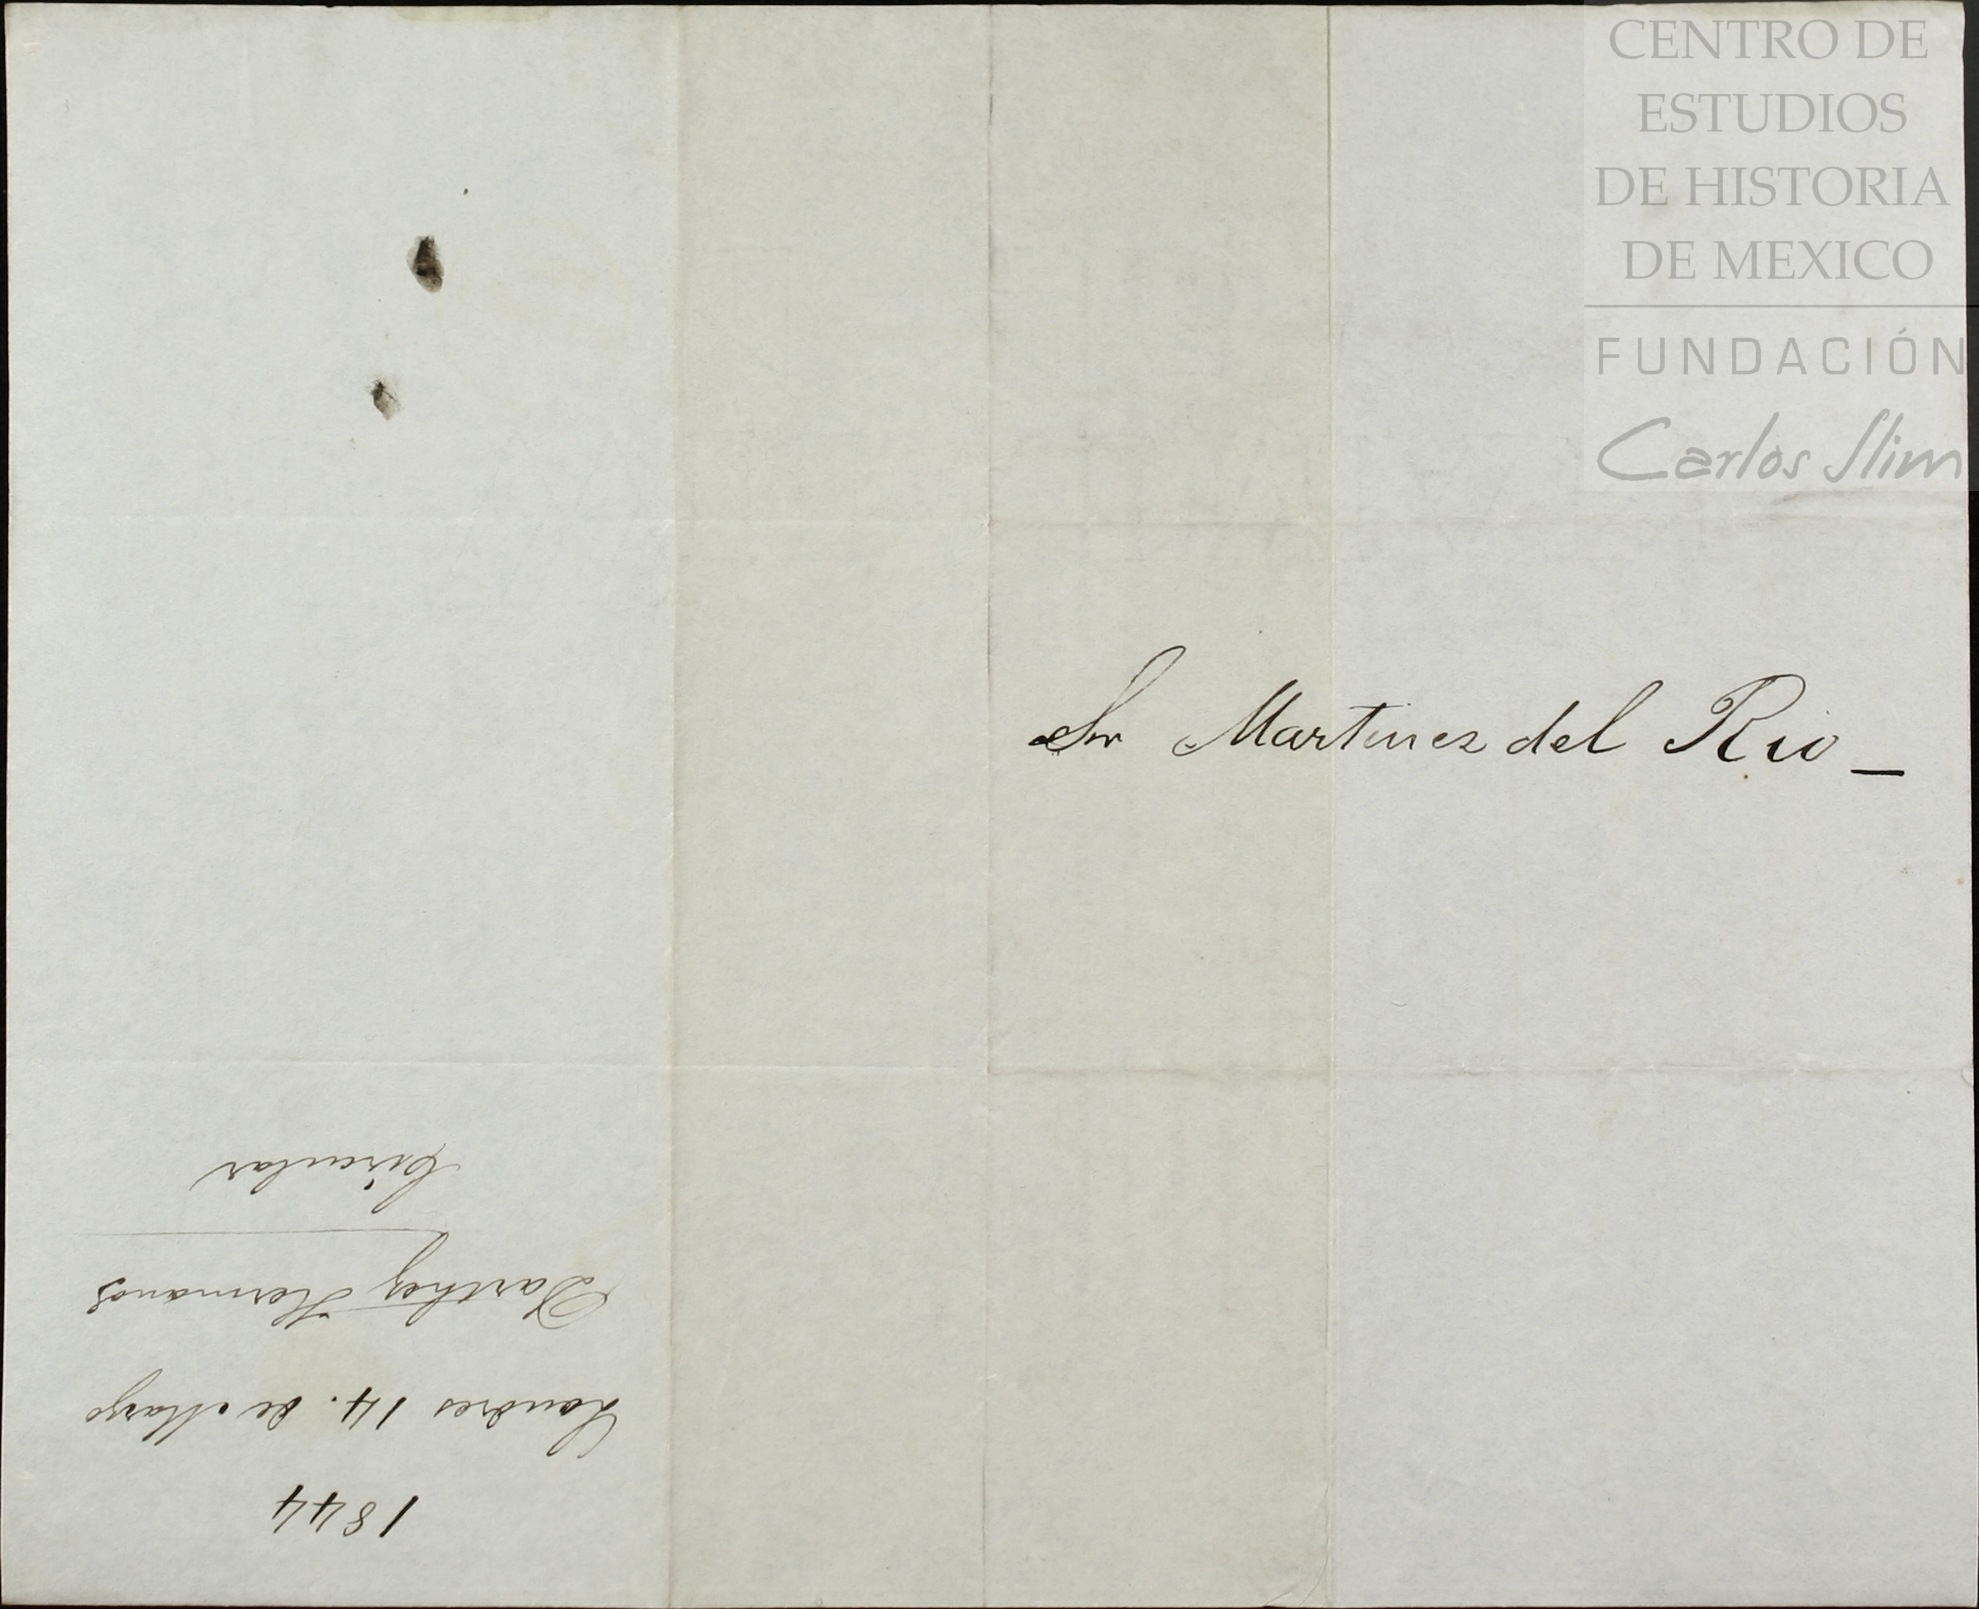 CENTRO DE
ESTUDIOS
DE HISTORIA
DE MEXICO
FUNDACIÓN
Carlos Slim
Sr Martinez del Rio _
1844
Londres 14. de Marzo
Darthez Hermanos
Circular